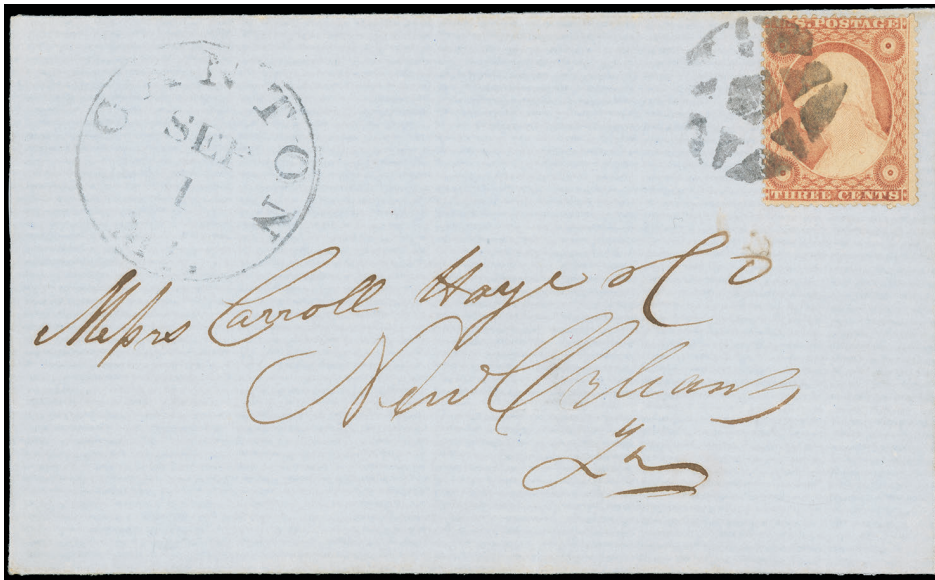 CANTON
SEP
1
U.S. POSTAGE
THREE CENTS
Messrs Carroll Hoye & Co
New Orleans
La